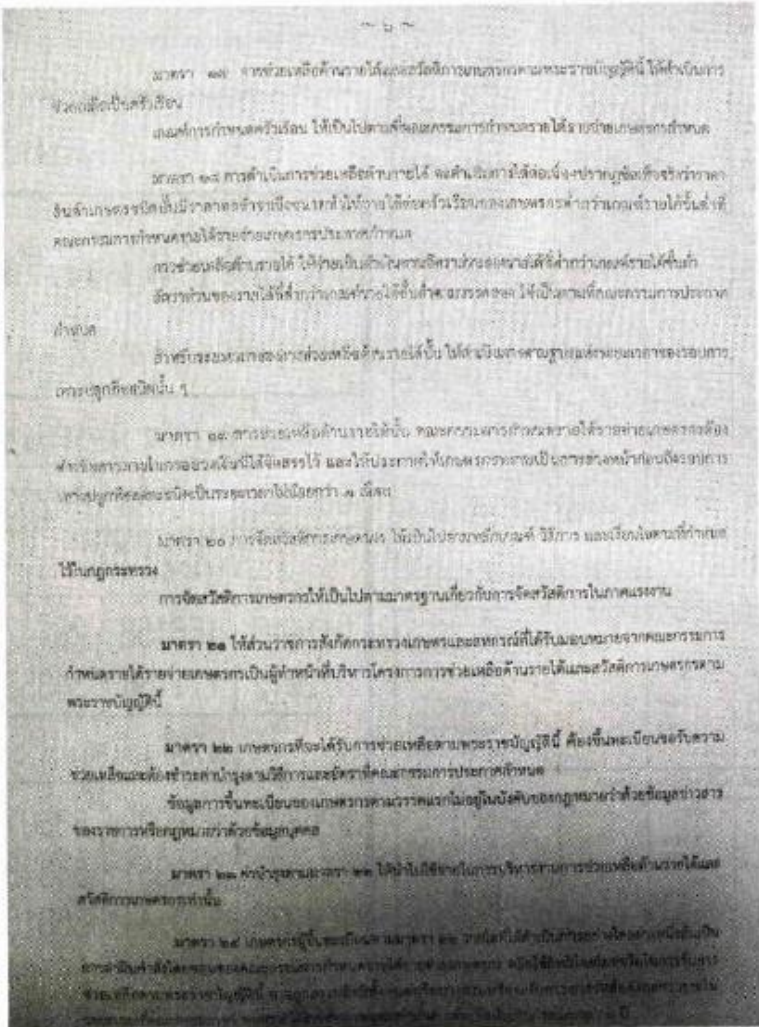 ~ ๖ ~
มาตรา ๑๗ การช่วยเหลือด้านรายได้และสวัสดิการเกษตรกรตามพระราชบัญญัตินี้ ให้ดำเนินการ
ช่วยเหลือเป็นครัวเรือน
เกณฑ์การกำหนดครัวเรือน ให้เป็นไปตามที่คณะกรรมการกำหนดรายได้รายจ่ายเกษตรกรกำหนด
มาตรา ๑๘ การดำเนินการช่วยเหลือด้านรายได้ จะดำเนินการได้ต่อเมื่อปรากฏข้อเท็จจริงว่าราคา
สินค้าเกษตรชนิดนั้นมีราคาตกต่ำจนถึงขนาดทำให้รายได้ต่อครัวเรือนของเกษตรกรต่ำกว่าเกณฑ์รายได้ขั้นต่ำที่
คณะกรรมการกำหนดรายได้รายจ่ายเกษตรกรประกาศกำหนด
การช่วยเหลือด้านรายได้ ให้จ่ายเป็นตัวเงินตามอัตราส่วนของรายได้ที่ต่ำกว่าเกณฑ์รายได้ขั้นต่ำ
อัตราส่วนของรายได้ที่ต่ำกว่าเกณฑ์รายได้ขั้นต่ำตามวรรคสอง ให้เป็นตามที่คณะกรรมการประกาศ
กำหนด
สำหรับระยะเวลาของการช่วยเหลือด้านรายได้นั้น ให้คำนึงมาตรฐานแห่งระยะเวลาของรอบการ
เพาะปลูกพืชชนิดนั้น ๆ
มาตรา ๑๙ การช่วยเหลือด้านรายได้นั้น คณะกรรมการกำหนดรายได้รายจ่ายเกษตรกรต้อง
ดำเนินการภายในกรอบวงเงินที่ได้จัดสรรไว้ และให้ประกาศให้เกษตรกรทราบเป็นการล่วงหน้าก่อนถึงรอบการ
เพาะปลูกพืชแต่ละชนิดเป็นระยะเวลาไม่น้อยกว่า ๓ เดือน
มาตรา ๒๐ การจัดสวัสดิการเกษตรกร ให้เป็นไปตามหลักเกณฑ์ วิธีการ และเงื่อนไขตามที่กำหนด
ไว้ในกฎกระทรวง
การจัดสวัสดิการเกษตรกรให้เป็นไปตามมาตรฐานเกี่ยวกับการจัดสวัสดิการในภาคแรงงาน
มาตรา ๒๑ ให้ส่วนราชการสังกัดกระทรวงเกษตรและสหกรณ์ที่ได้รับมอบหมายจากคณะกรรมการ
กำหนดรายได้รายจ่ายเกษตรกรเป็นผู้ทำหน้าที่บริหารโครงการการช่วยเหลือด้านรายได้และสวัสดิการเกษตรกรตาม
พระราชบัญญัตินี้
มาตรา ๒๒ เกษตรกรที่จะได้รับการช่วยเหลือตามพระราชบัญญัตินี้ ต้องขึ้นทะเบียนขอรับความ
ช่วยเหลือและต้องชำระค่าบำรุงตามวิธีการและอัตราที่คณะกรรมการประกาศกำหนด
ข้อมูลการขึ้นทะเบียนของเกษตรกรตามวรรคแรกไม่อยู่ในบังคับของกฎหมายว่าด้วยข้อมูลข่าวสาร
ของราชการหรือกฎหมายว่าด้วยข้อมูลบุคคล
มาตรา ๒๓ ค่าบำรุงตามมาตรา ๒๒ ให้นำไปใช้จ่ายในการบริหารงานการช่วยเหลือด้านรายได้และ
สวัสดิการเกษตรกรเท่านั้น
มาตรา ๒๔ เกษตรกรผู้ขึ้นทะเบียนตามมาตรา ๒๒
ช่วยเหลือตามพระราชบัญญัตินี้